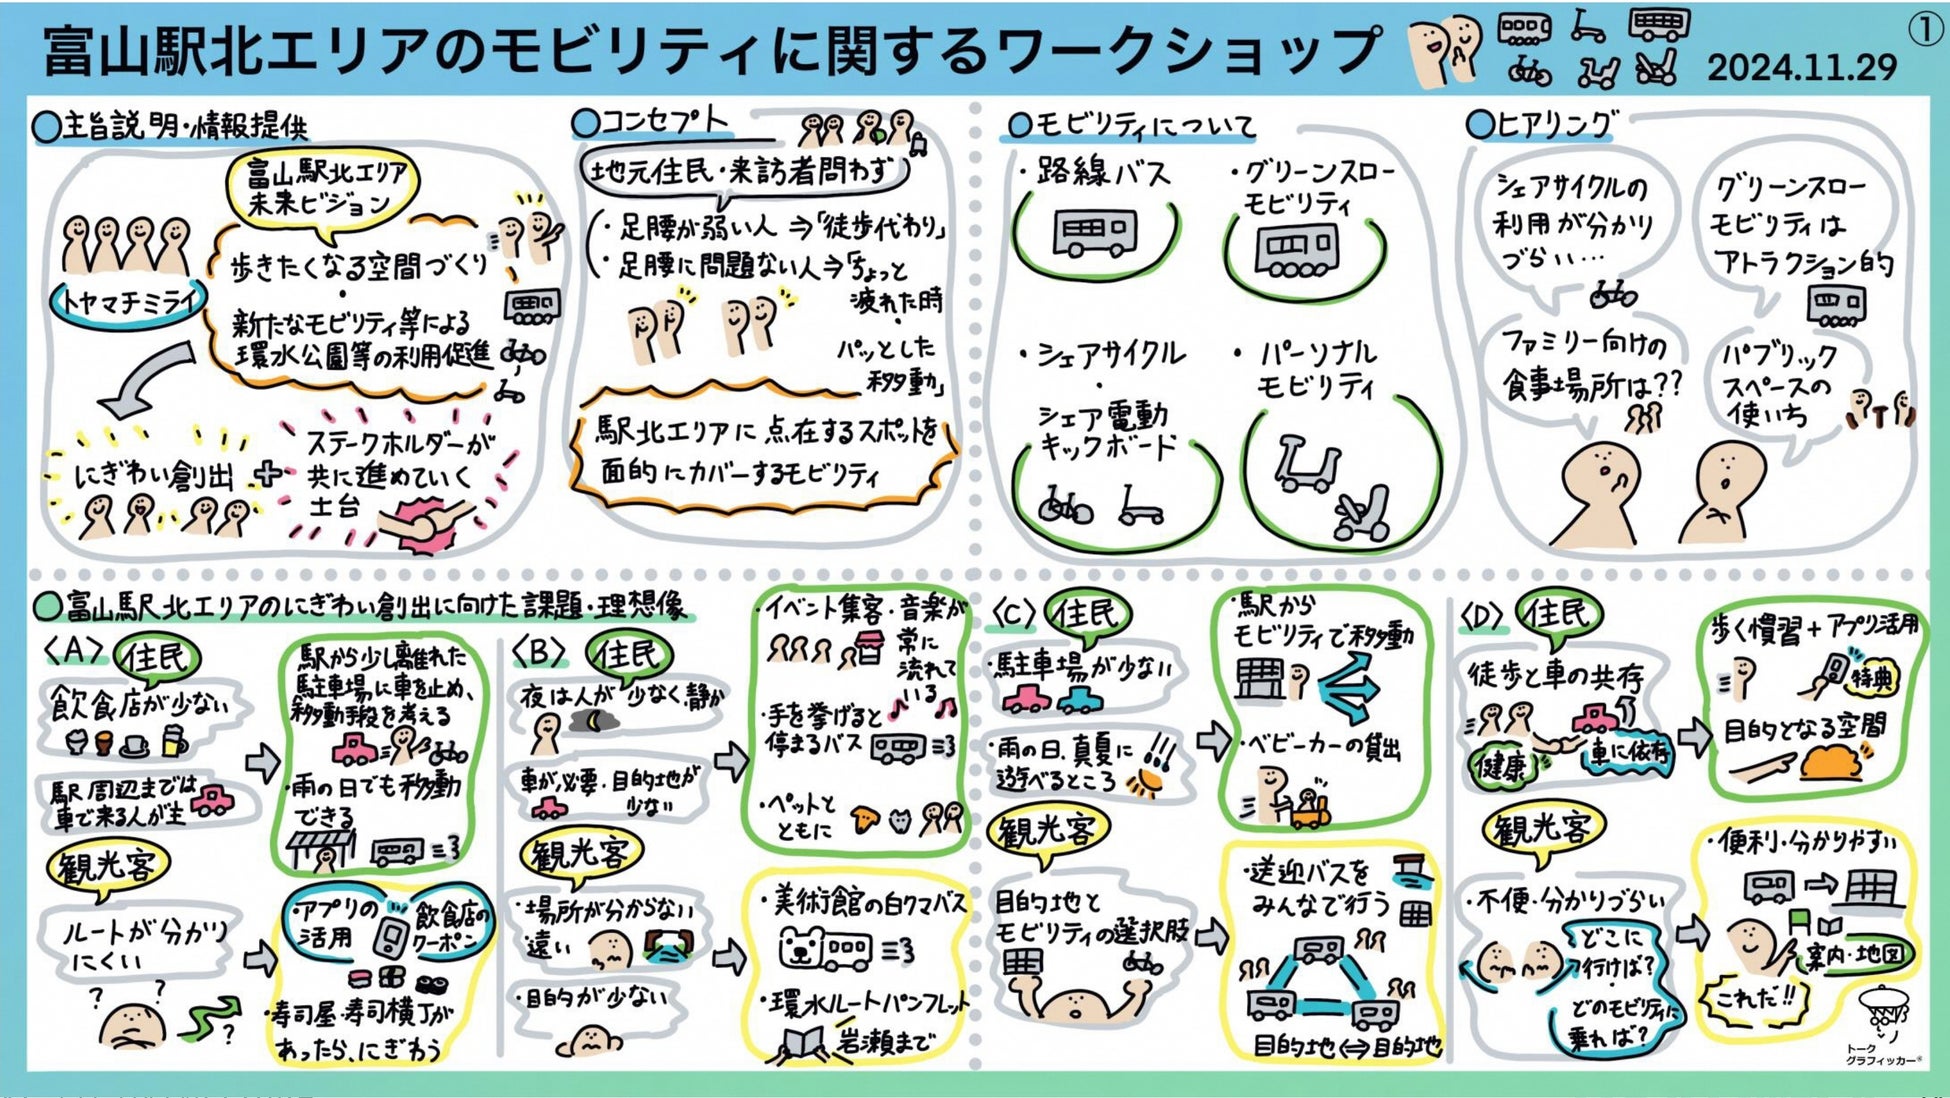 富山駅北エリアのモビリティに関するワークショップ
2024.11.29
①
主旨説明・情報提供
富山駅北エリア
未来ビジョン
トヤマチミライ
歩きたくなる空間づくり
・
新たなモビリティ等による
環水公園等の利用促進
にぎわい創出
+
ステークホルダーが
共に進めていく
土台
コンセプト
地元住民・来訪者問わず
・足腰が弱い人⇒「徒歩代わり」
・足腰に問題ない人⇒「ちょっと
疲れた時
・
パッとした
移動」
駅北エリアに点在するスポットを
面的にカバーするモビリティ
モビリティについて
・路線バス
・グリーンスロー
モビリティ
・シェアサイクル
・
シェア電動
キックボード
・パーソナル
モビリティ
ヒアリング
シェアサイクルの
利用が分かり
づらい…
グリーンスロー
モビリティは
アトラクション的
ファミリー向けの
食事場所は??
パブリック
スペースの
使いち
富山駅北エリアのにぎわい創出に向けた課題・理想像
〈A〉
住民
飲食店が少ない
駅周辺までは
車で来る人が主
駅から少し離れた
駐車場に車を止め、
移動手段を考える
・雨の日でも移動
できる
観光客
ルートが分かり
にくい
? ? ?
・アプリの
活用
飲食店の
クーポン
・寿司屋・寿司横丁が
あったら、にぎわう
〈B〉
住民
夜は人が少なく静か
車が必要・目的地が
少ない
・イベント集客・音楽が
常に
流れて
いる
・手を挙げると
停まるバス
・ペットと
ともに
観光客
・場所が分からない
遠い
・目的が少ない
・美術館の白クマバス
・環水ルートパンフレット
岩瀬まで
〈C〉
住民
・駐車場が少ない
・雨の日、真夏に
遊べるところ
・駅から
モビリティで移動
・ベビーカーの貸出
観光客
目的地と
モビリティの選択肢
・送迎バスを
みんなで行う
目的地⇔目的地
〈D〉
住民
徒歩と車の共存
健康
車に依存
歩く慣習+アプリ活用
特典
目的となる空間
観光客
・不便・分かりづらい
どこに
行けば?
・
どのモビリティに
乗れば?
・便利・分かりやすい
案内・地図
これだ!!
トーク
グラフィッカー®